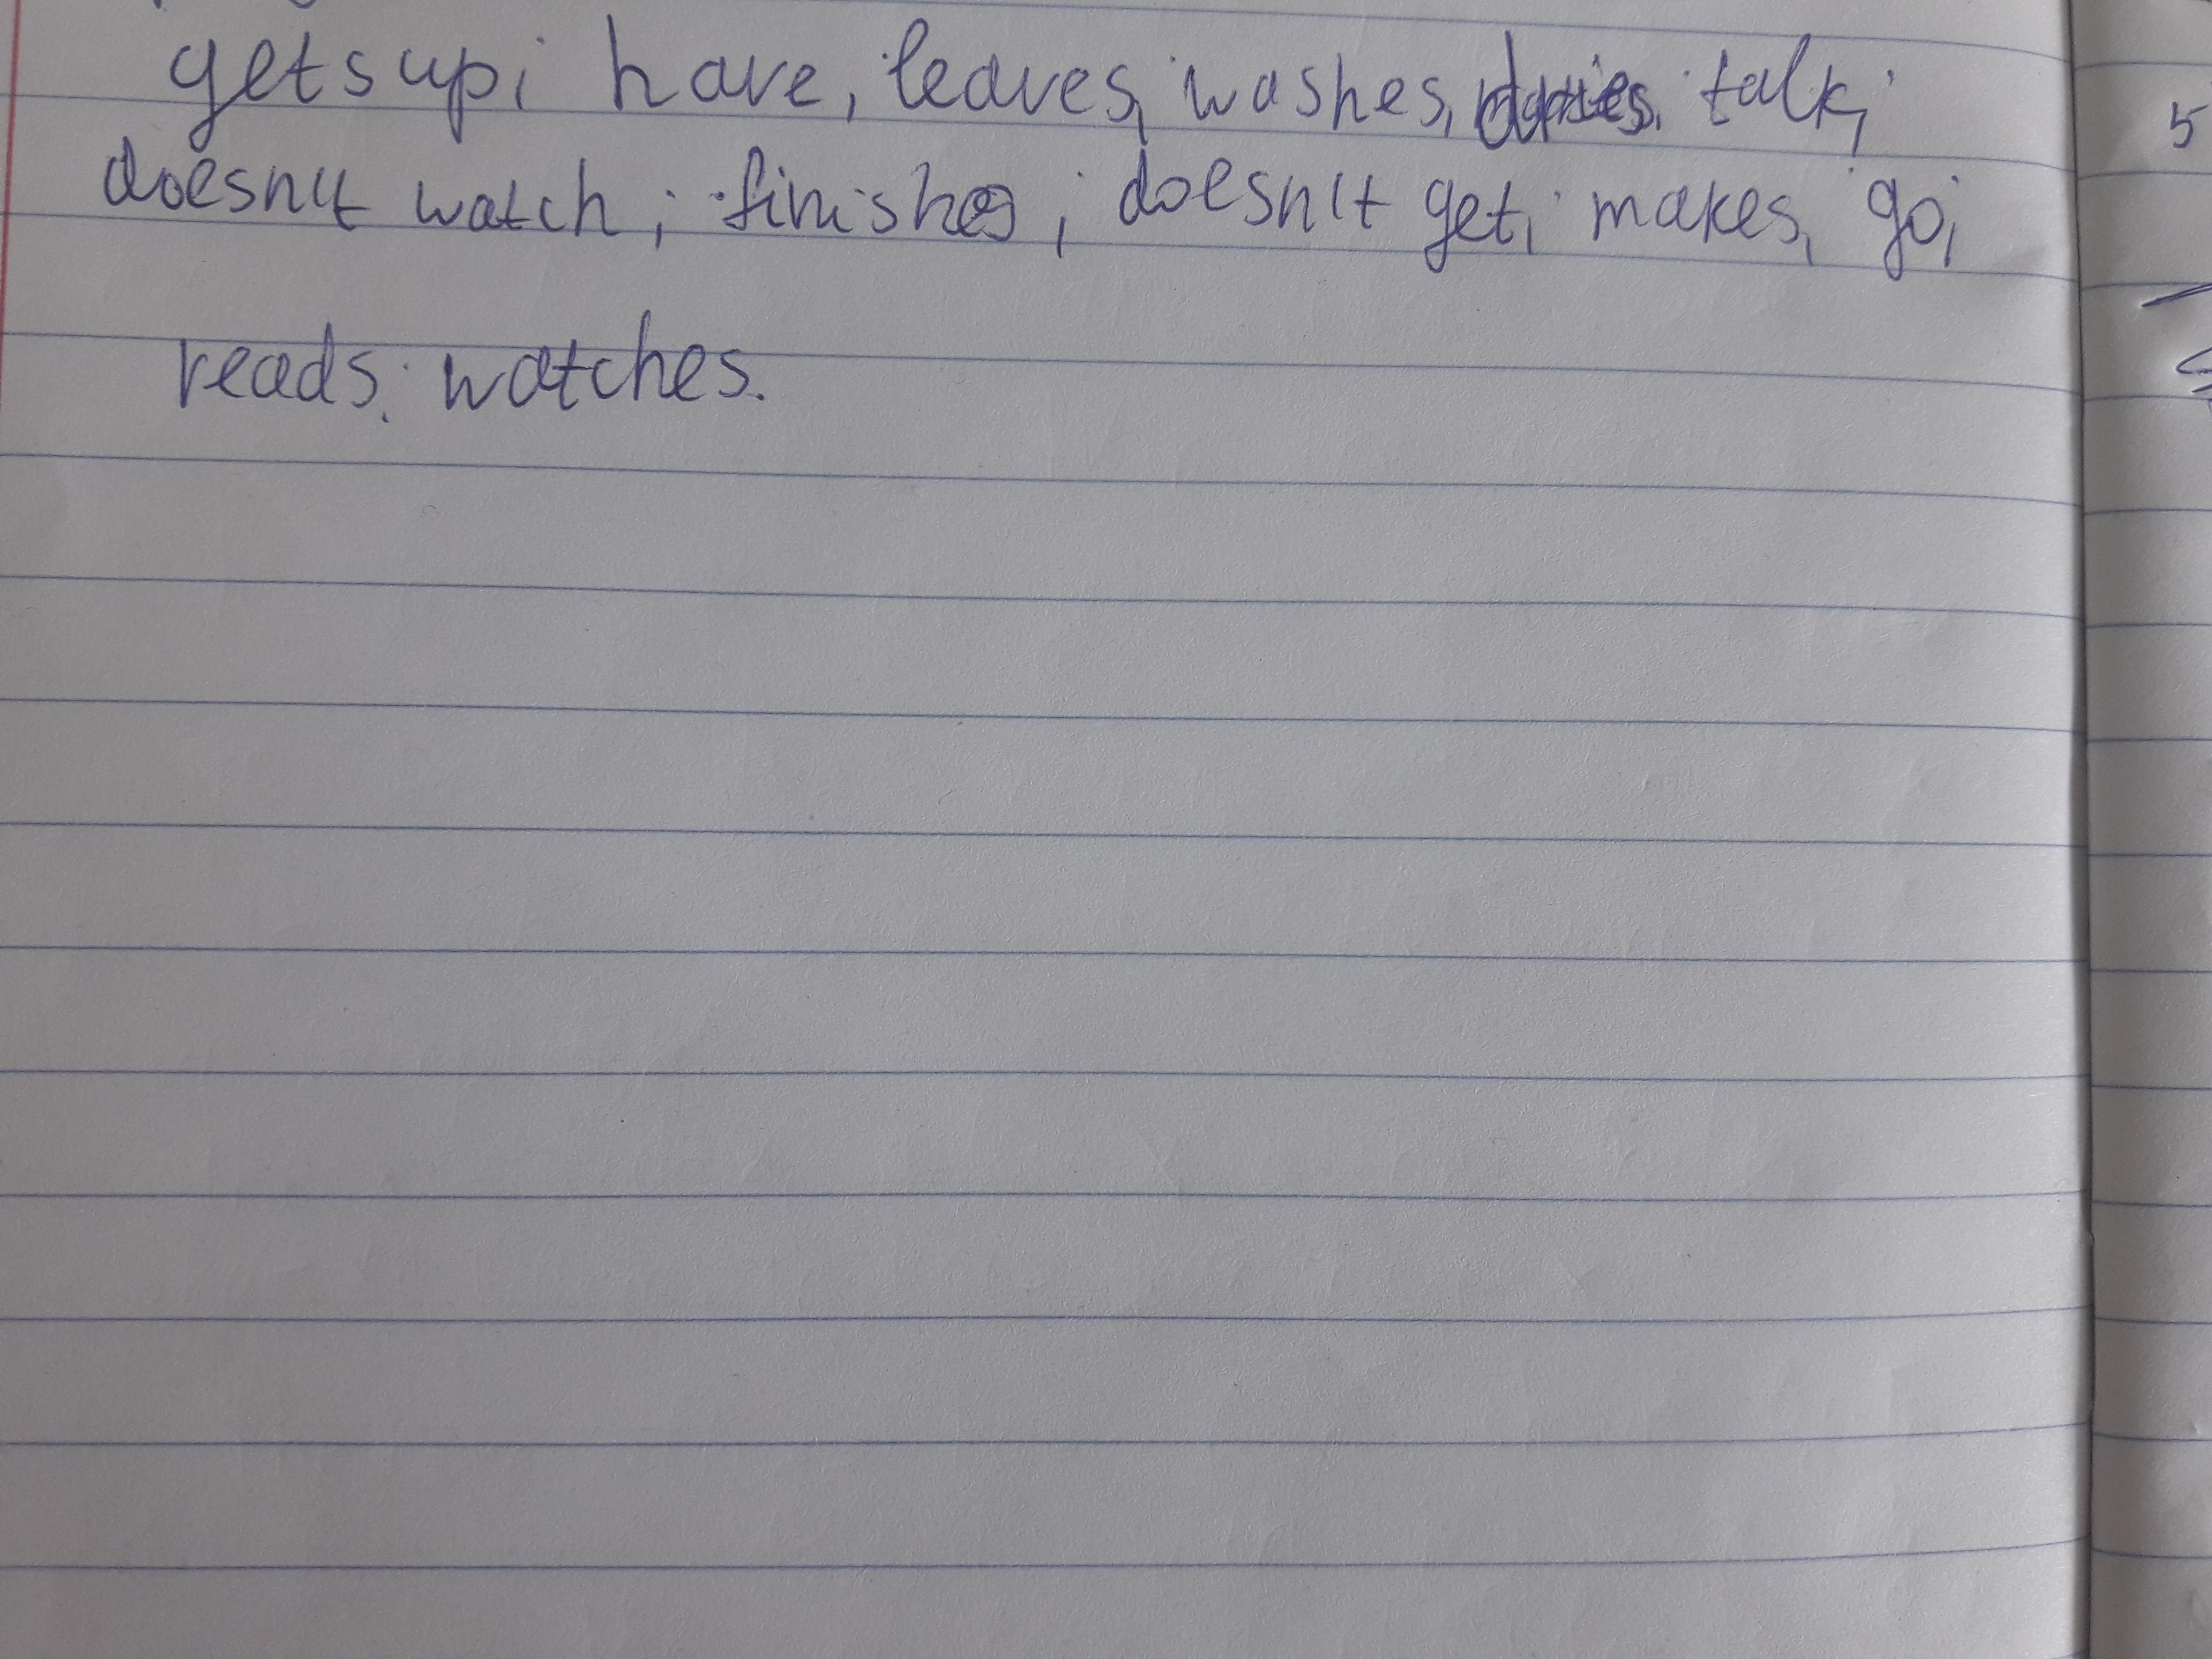 gets up; have, leaves, washes, talk;
doesn't watch; finishes; doesn't get; makes, go;
reads; watches.
5